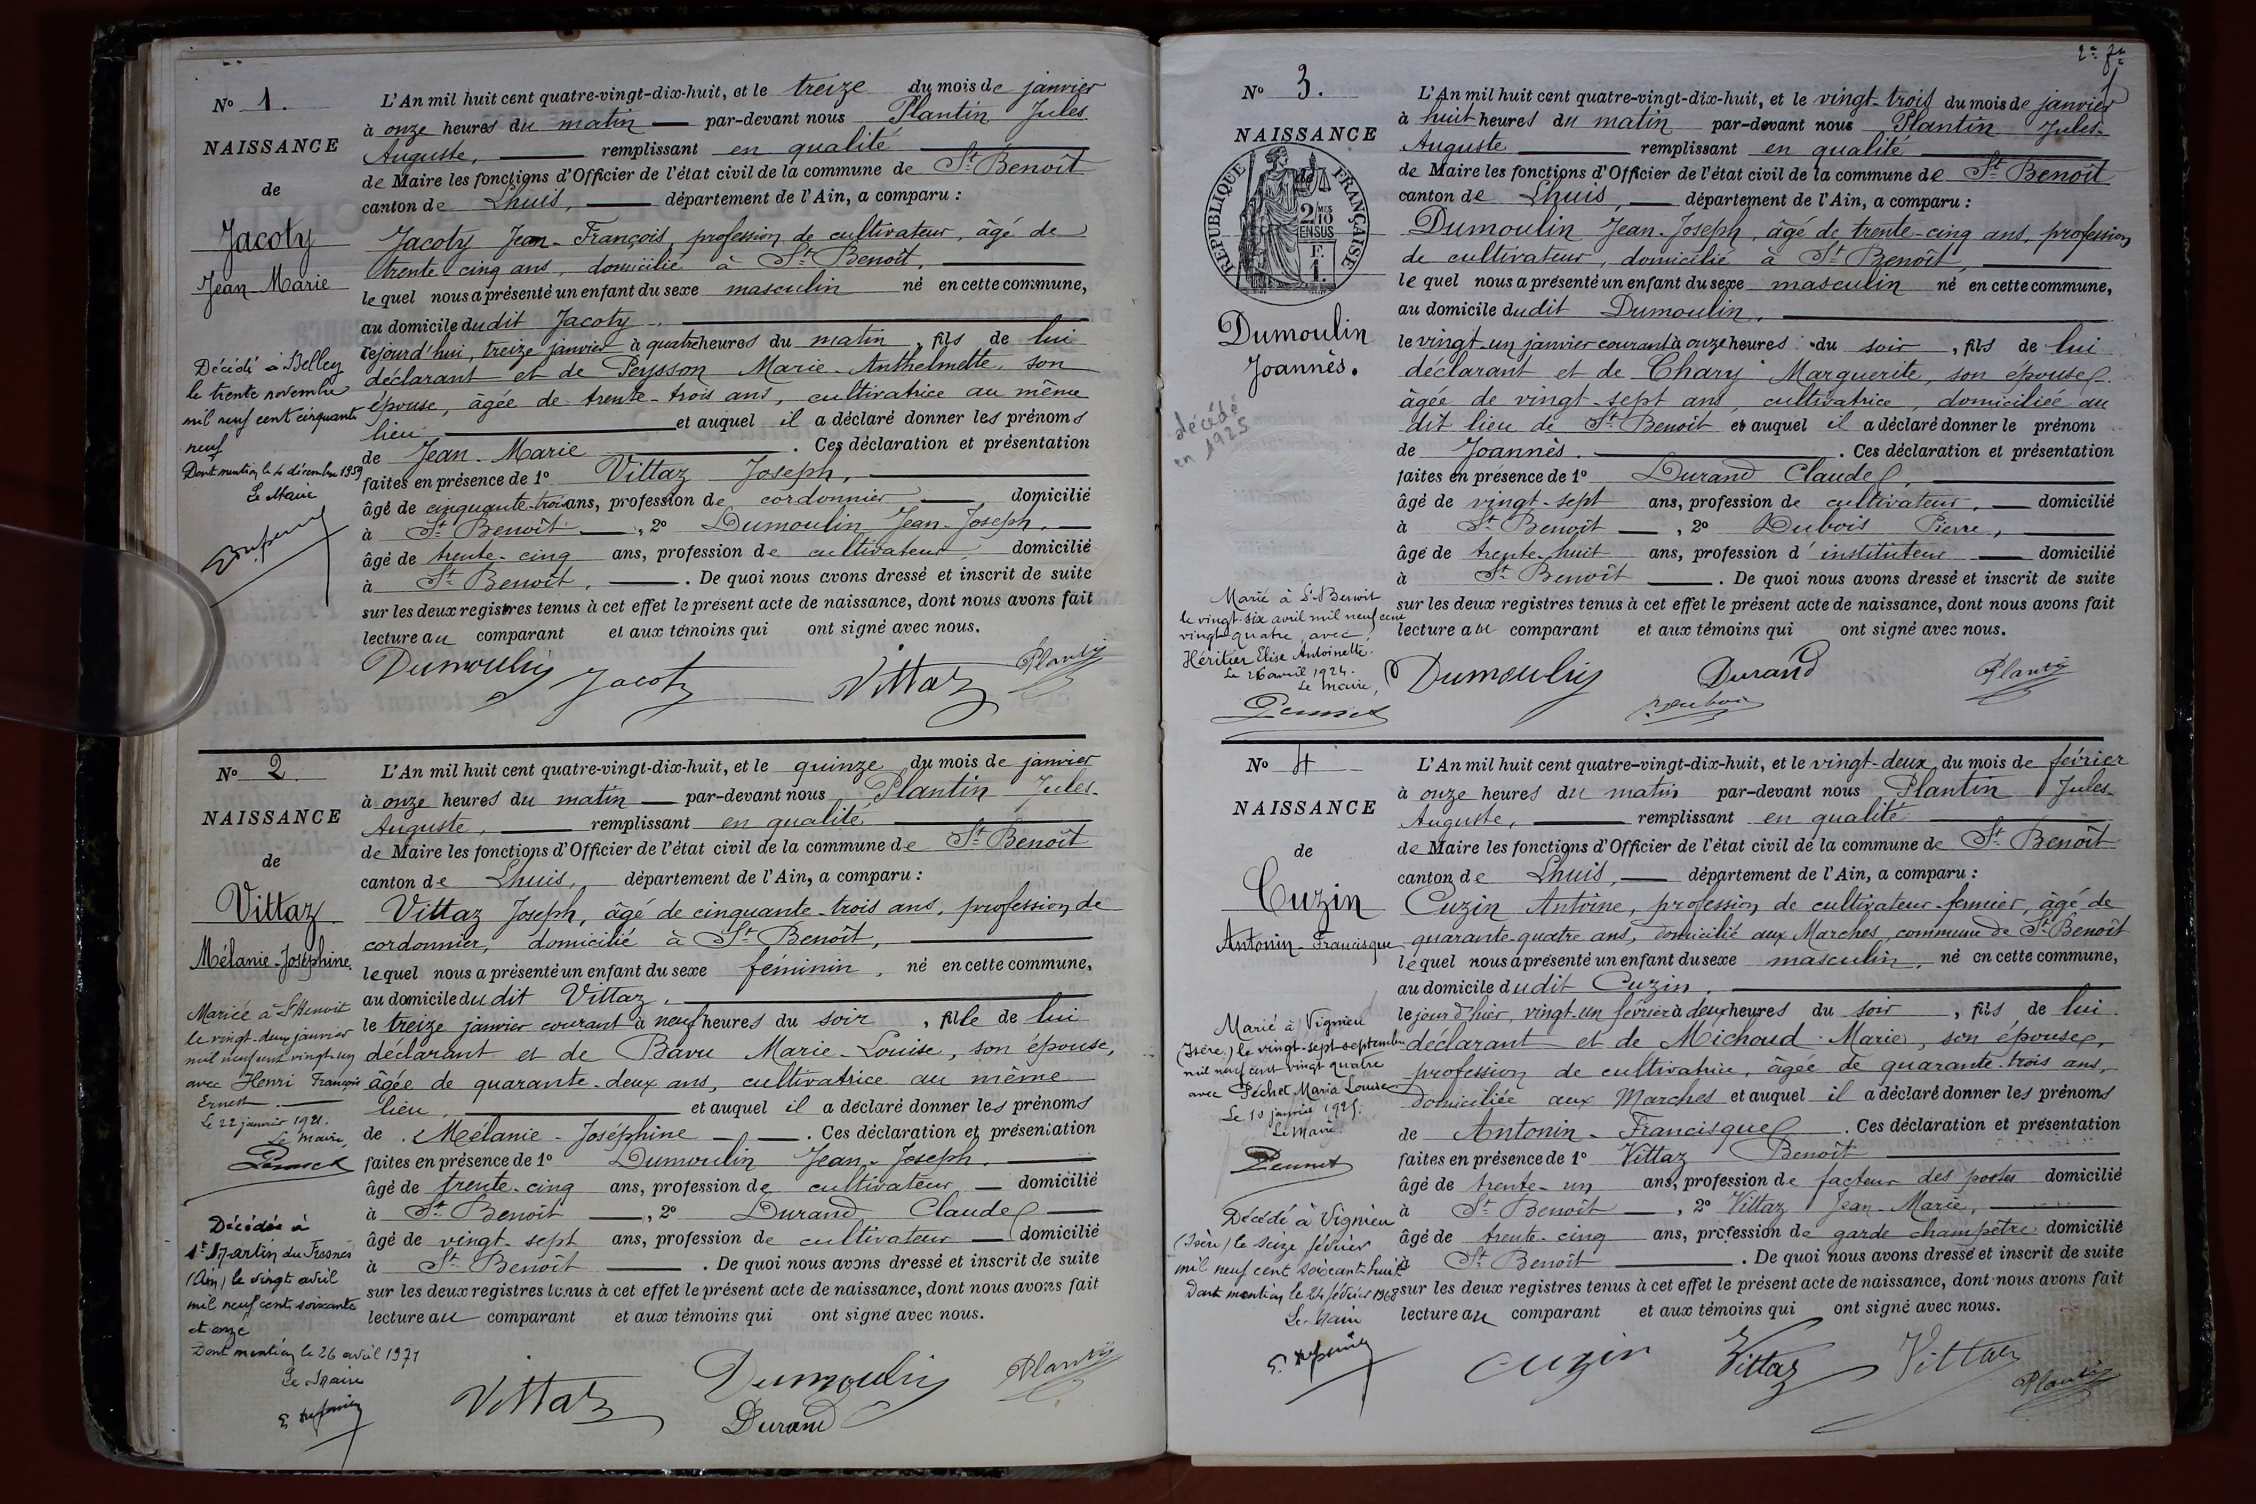 N° 1.
NAISSANCE
de
Jacoty
Jean-Marie
Décédé à Belley
le trente novembre
mil neuf cent cinquante
neuf
Dont mention le 4 décembre 1959
Le Maire
L'An mil huit cent quatre-vingt-dix-huit, et le treize du mois de janvier
à onze heures du matin — par-devant nous Plantin Jules
Auguste, — remplissant en qualité
de Maire les fonctions d'Officier de l'état civil de la commune de St Benoît
canton de Lhuis, — département de l'Ain, a comparu :
Jacoty Jean-François, profession de cultivateur, âgé de
trente cinq ans, domicilié à St Benoît,
lequel nous a présenté un enfant du sexe masculin né en cette commune,
au domicile dudit Jacoty.
cejourd'hui, treize janvier à quatre heures du matin, fils de lui
déclarant et de Peysson Marie-Anthelmette, son
épouse, âgée de trente-trois ans, cultivatrice au même
lieu — et auquel il a déclaré donner les prénoms
de Jean-Marie — . Ces déclaration et présentation
faites en présence de 1° Vittaz Joseph,
âgé de cinquante-trois ans, profession de cordonnier — domicilié
à St Benoît — , 2° Dumoulin Jean-Joseph. —
âgé de trente-cinq ans, profession de cultivateur, domicilié
à St Benoît, — . De quoi nous avons dressé et inscrit de suite
sur les deux registres tenus à cet effet le présent acte de naissance, dont nous avons fait
lecture au comparant et aux témoins qui ont signé avec nous.
Dumoulin Jacoty Vittaz Plantin
N° 2.
NAISSANCE
de
Vittaz
Mélanie-Joséphine
Mariée à St Benoit
le vingt-deux janvier
mil neuf cent vingt-un
avec Henri François
Ernest —
Le 22 janvier 1921.
Le Maire,
Décédée à
St Martin du Fresnes
(Ain) le vingt avril
mil neuf cent soixante
et onze
Dont mention le 26 avril 1971
Le Maire
L'An mil huit cent quatre-vingt-dix-huit, et le quinze du mois de janvier
à onze heures du matin — par-devant nous Plantin Jules-
Auguste, — remplissant en qualité
de Maire les fonctions d'Officier de l'état civil de la commune de St Benoît
canton de Lhuis, — département de l'Ain, a comparu :
Vittaz Joseph, âgé de cinquante-trois ans, profession de
cordonnier, domicilié à St Benoît,
lequel nous a présenté un enfant du sexe féminin, né en cette commune,
au domicile dudit Vittaz.
le treize janvier courant à neuf heures du soir, fille de lui
déclarant et de Bavu Marie-Louise, son épouse,
âgée de quarante-deux ans, cultivatrice au même
lieu, — et auquel il a déclaré donner les prénoms
de Mélanie-Joséphine — . Ces déclaration et présentation
faites en présence de 1° Dumoulin Jean-Joseph.
âgé de trente-cinq ans, profession de cultivateur — domicilié
à St Benoît — , 2° Durand Claude —
âgé de vingt-sept ans, profession de cultivateur — domicilié
à St Benoît — . De quoi nous avons dressé et inscrit de suite
sur les deux registres tenus à cet effet le présent acte de naissance, dont nous avons fait
lecture au comparant et aux témoins qui ont signé avec nous.
Vittaz Dumoulin Plantin
Durand
N° 3.
NAISSANCE
de
RÉPUBLIQUE FRANÇAISE
2/10 MES
EN SUS
F.
1.
Dumoulin
Joannès.
décédé
en 1925
Marié à St Benoit
le vingt-six avril mil neuf cent
vingt quatre, avec
Héritier Elise Antoinette.
Le 26 avril 1924.
Le Maire,
L'An mil huit cent quatre-vingt-dix-huit, et le vingt-trois du mois de janvier
à huit heures du matin par-devant nous Plantin Jules-
Auguste — remplissant en qualité
de Maire les fonctions d'Officier de l'état civil de la commune de St Benoît
canton de Lhuis, — département de l'Ain, a comparu :
Dumoulin Jean-Joseph, âgé de trente-cinq ans, profession
de cultivateur, domicilié à St Benoît,
lequel nous a présenté un enfant du sexe masculin né en cette commune,
au domicile dudit Dumoulin,
le vingt-un janvier courant à onze heures du soir, fils de lui
déclarant et de Chary Marguerite, son épouse
âgée de vingt-sept ans, cultivatrice, domiciliée au
dit lieu de St Benoît et auquel il a déclaré donner le prénom
de Joannès. — . Ces déclaration et présentation
faites en présence de 1° Durand Claude,
âgé de vingt-sept ans, profession de cultivateur, — domicilié
à St Benoît — , 2° Dubois Pierre,
âgé de trente-huit ans, profession d'instituteur — domicilié
à St Benoît — . De quoi nous avons dressé et inscrit de suite
sur les deux registres tenus à cet effet le présent acte de naissance, dont nous avons fait
lecture au comparant et aux témoins qui ont signé avec nous.
Dumoulin Durand Plantin
Dubois
N° 4
NAISSANCE
de
Cuzin
Antonin-Francisque
Marié à Vignieu
(Isère) le vingt-sept septembre
mil neuf cent vingt quatre
avec Péchet Maria Louise
Le 10 janvier 1925.
Le Maire.
Décédé à Vignieu
(Isère) le seize février
mil neuf cent soixante-huit
Dont mention le 24 février 1968
Le Maire
L'An mil huit cent quatre-vingt-dix-huit, et le vingt-deux du mois de février
à onze heures du matin par-devant nous Plantin Jules-
Auguste, — remplissant en qualité
de Maire les fonctions d'Officier de l'état civil de la commune de St Benoît
canton de Lhuis, — département de l'Ain, a comparu :
Cuzin Antoine, profession de cultivateur-fermier, âgé de
quarante-quatre ans, domicilié aux Marches, commune de St Benoît
lequel nous a présenté un enfant du sexe masculin, né en cette commune,
au domicile dudit Cuzin,
le jour d'hier, vingt-un février à deux heures du soir, fils de lui
déclarant et de Michoud Marie, son épouse,
profession de cultivatrice, âgée de quarante-trois ans,
domiciliée aux Marches et auquel il a déclaré donner les prénoms
de Antonin-Francisque — . Ces déclaration et présentation
faites en présence de 1° Vittaz Benoît
âgé de trente-un ans, profession de facteur des postes domicilié
à St Benoît — , 2° Vittaz Jean-Marie,
âgé de trente-cinq ans, profession de garde champêtre domicilié
à St Benoît — . De quoi nous avons dressé et inscrit de suite
sur les deux registres tenus à cet effet le présent acte de naissance, dont nous avons fait
lecture au comparant et aux témoins qui ont signé avec nous.
Cuzin Vittaz Vittaz
Plantin